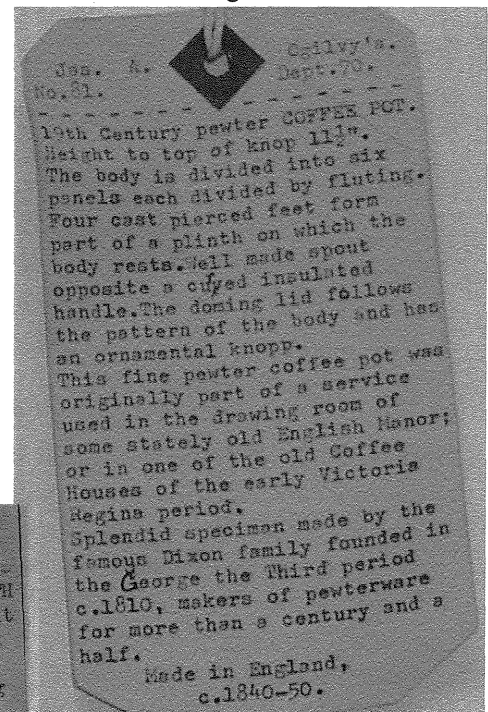 Jas. A. Ogilvy's.
No.81. Dept.70.
19th Century pewter COFFEE POT.
Height to top of knop 11½".
The body is divided into six
panels each divided by fluting.
Four cast pierced feet form
part of a plinth on which the
body rests.Well made spout
opposite a curved insulated
handle.The doming lid follows
the pattern of the body and has
an ornamental knopp.
This fine pewter coffee pot was
originally part of a service
used in the drawing room of
some stately old English Manor;
or in one of the old Coffee
Houses of the early Victoria
Regina period.
Splendid specimen made by the
famous Dixon family founded in
the George the Third period
c.1810, makers of pewterware
for more than a century and a
half.
Made in England,
c.1840-50.